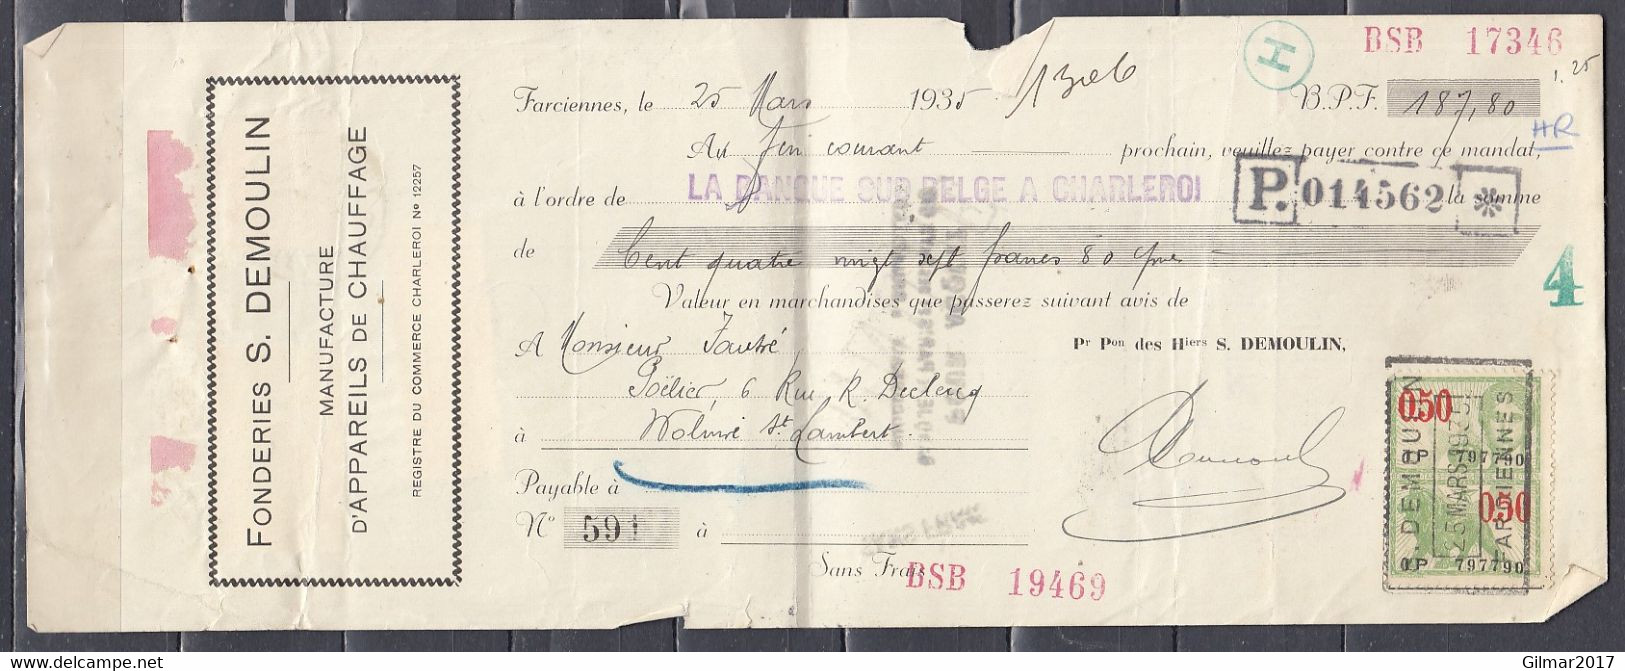 FONDERIES S. DEMOULIN
MANUFACTURE
D'APPAREILS DE CHAUFFAGE
REGISTRE DU COMMERCE CHARLEROI No 12257
H
BSB 17346
1.25
Farciennes, le 25 Mars 1935
B.P.F. 187,80
HR
Au fin courant prochain, veuillez payer contre ce mandat,
à l'ordre de LA BANQUE SUD BELGE A CHARLEROI la somme
P. 014562
de Cent quatre vingt sept francs 80 cmes
4
Valeur en marchandises que passerez suivant avis de
A Monsieur
Pr Pon des Hiers S. DEMOULIN,
Poëlier, 6 Rue R. Declercq
à Woluwé St Lambert
Payable à
No 591 à
Sans Frais
BSB 19469
050
S. DEMOULIN
25 MARS 1935
FARCIENNES
OP 797790
050
OP 797790
Gilmar2017